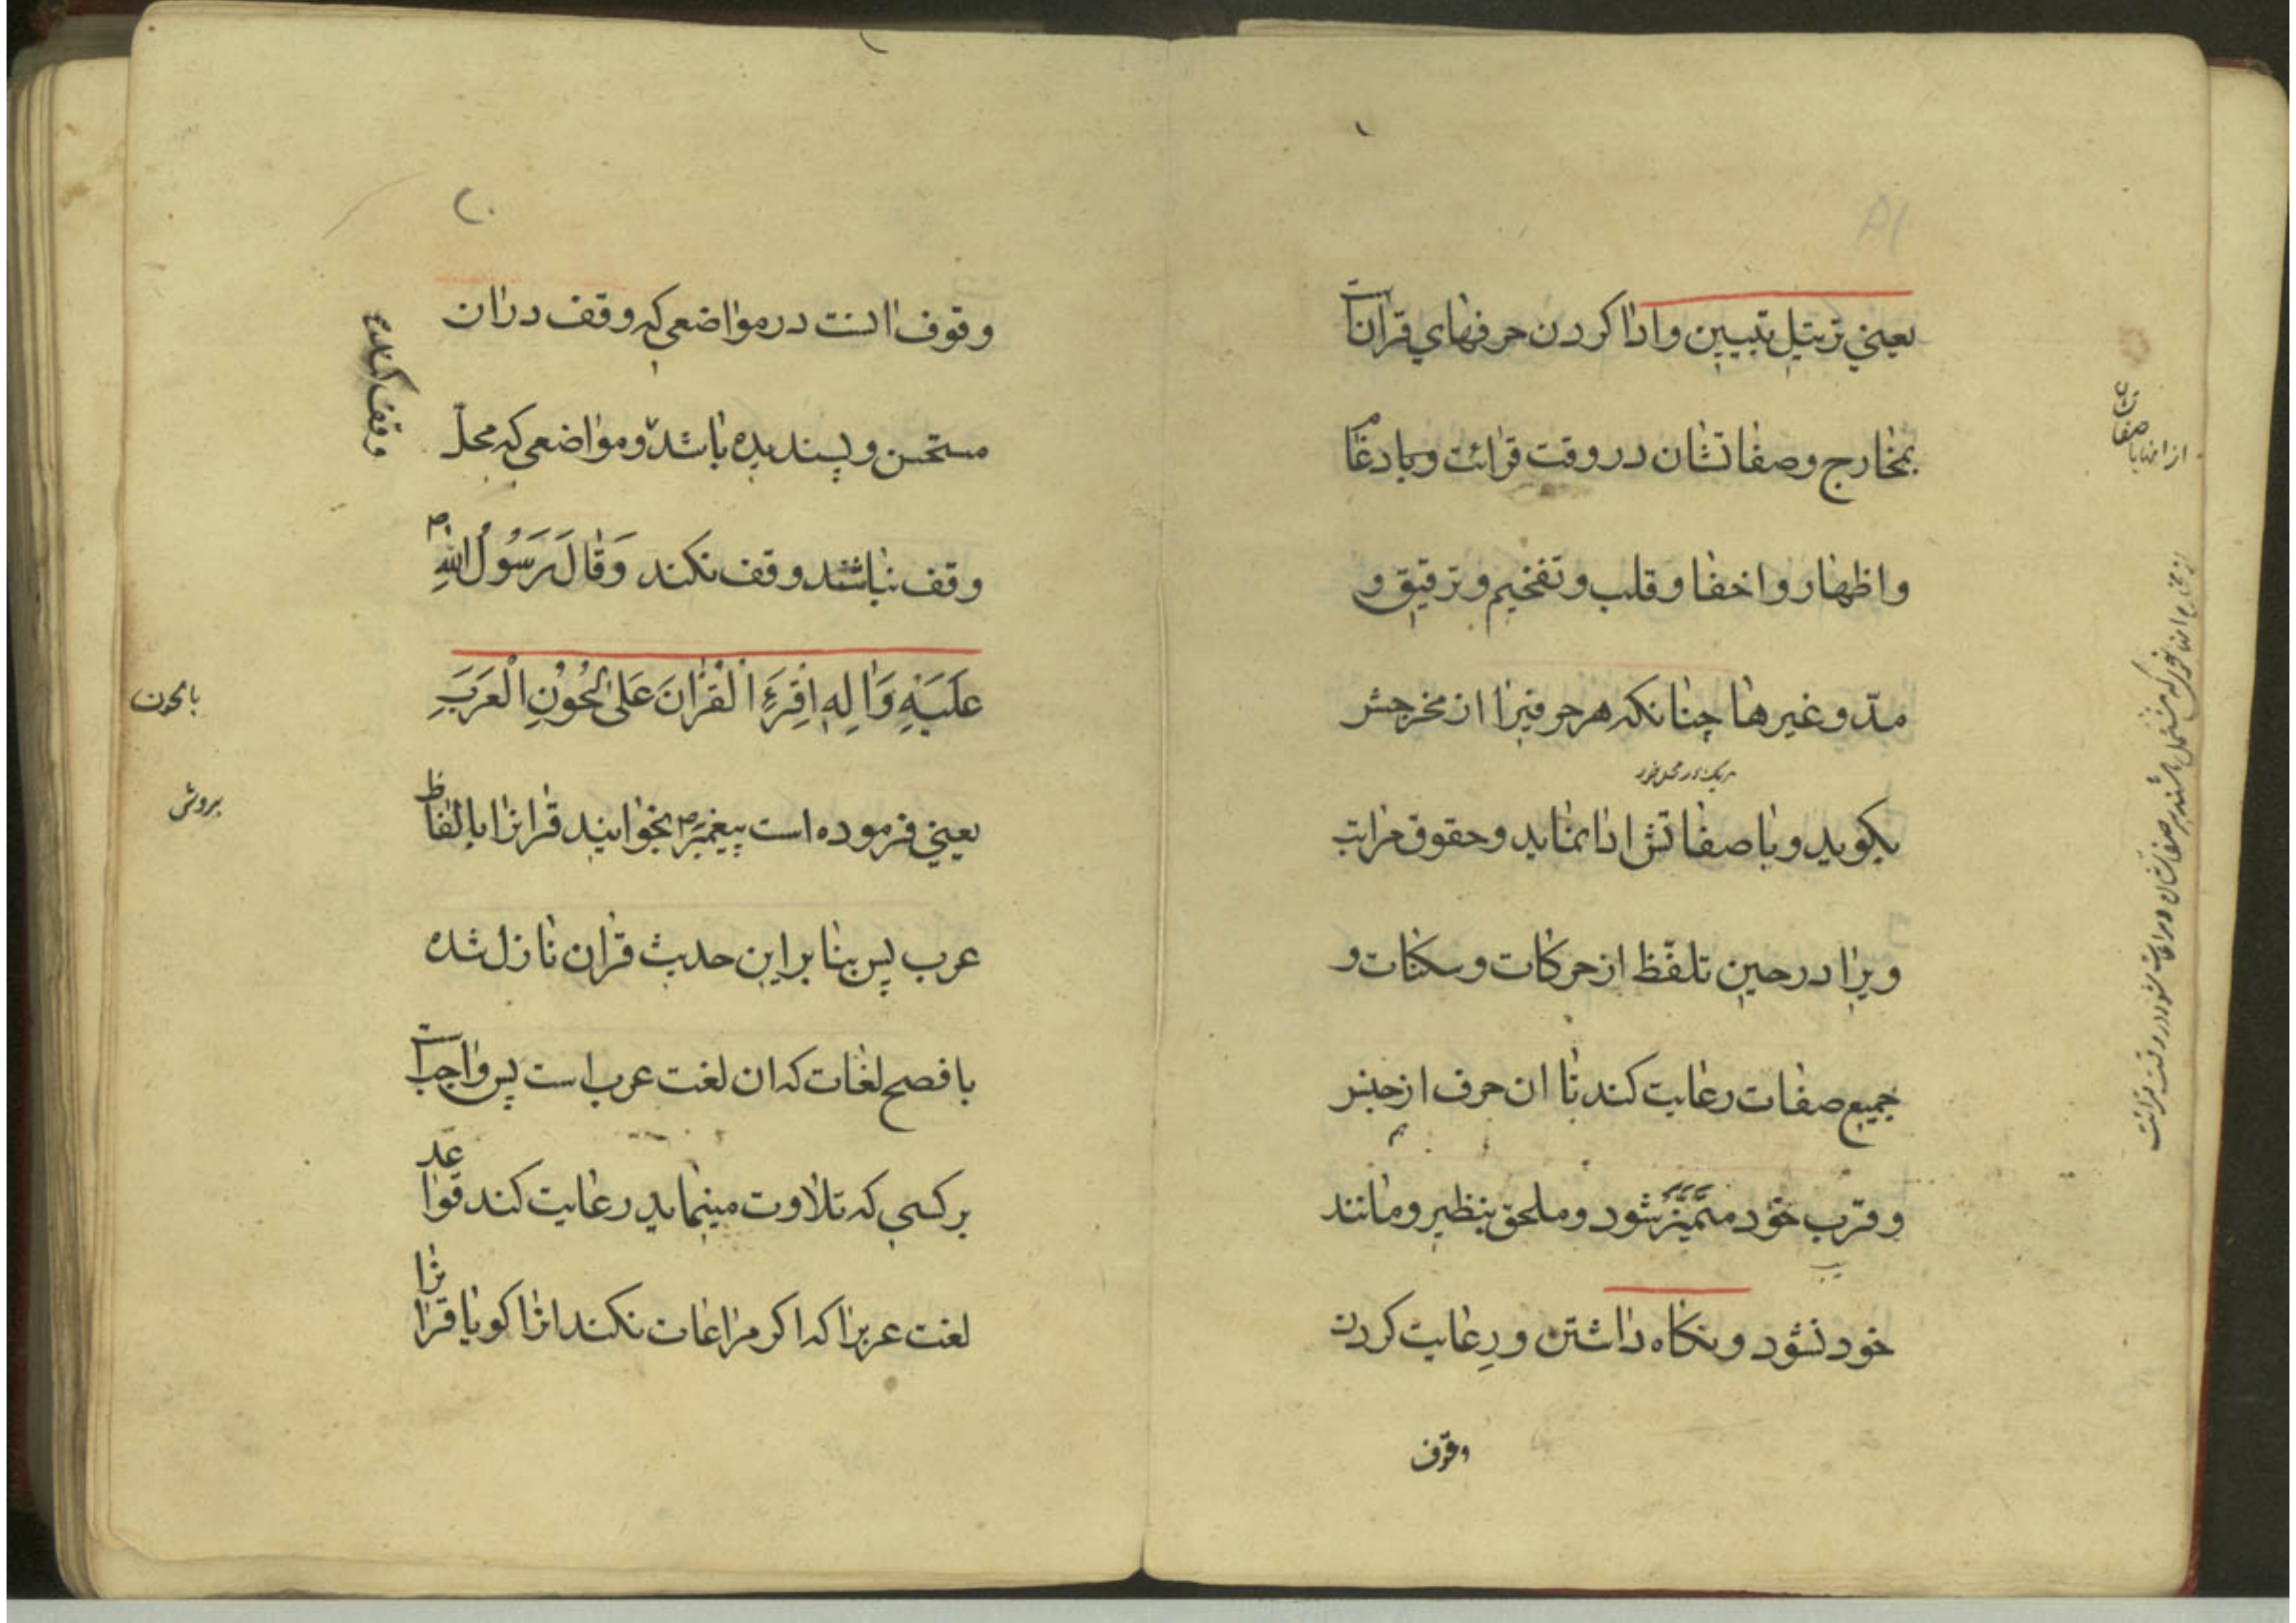 یعنی ترتیل تبیین و ادا کردن حرفهای قرانست
بمخارج و صفاتشان در وقت قرائت و با دغام
و اظهار و اخفا و قلب و تفخیم و ترقیق و
مدّ و غیرها چنانکه هر حرفیرا از مخرجش
هریک در محل خود
بکوید و با صفاتش ادا نماید و حقوق مراتب
ویرا در حین تلفّظ از حرکات و سکنات و
جمیع صفات رعایت کند تا ان حرف از جنس
و قرب خود متمیّز شود و ملحق بنظیر و مانند
خود نشود و نکاه داشتن و رعایت کردن
وقوف
وقوف انست در مواضعی که وقف دران
مستحسن و پسندیده باشد و مواضعی که محلّ
وقف نباشد وقف نکند وَقَالَ رَسُولُ اللهِ ص
عَلَیْهِ وَالِهِ اِقرَءِ الْقُرْانَ عَلىٰ لُحُونِ الْعَرَبِ
یعنی فرموده است پیغمبر ص بخوانید قرانرا بالفاظ
عرب پس بنا بر این حدیث قران نازل شده
بافصح لغات که ان لغت عرب است پس واجبست
بر کسی که تلاوت مینماید رعایت کند قواعد
لغت عربرا که اکر مراعات نکند انرا کویا قرانرا
بالحون
بروش